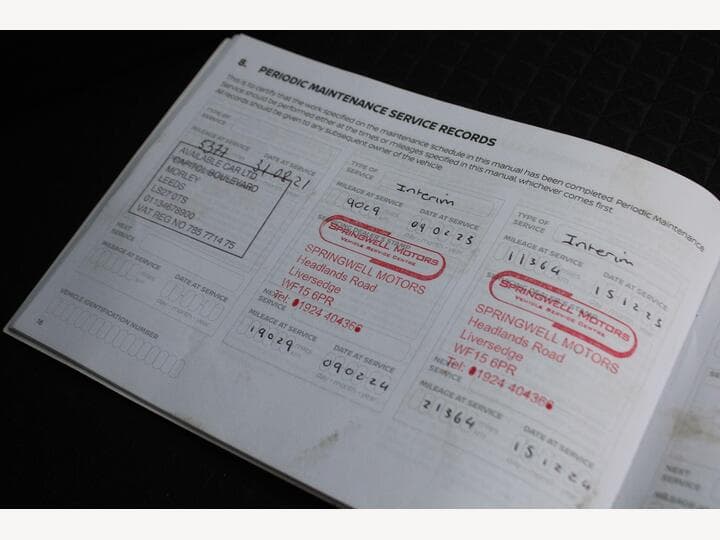 8. PERIODIC MAINTENANCE SERVICE RECORDS
This is to certify that the work specified on the maintenance schedule in this manual has been completed. Periodic Maintenance
Service should be performed either at the times or mileages specified in this manual, whichever comes first.
All records should be given to any subsequent owner of the vehicle.
TYPE OF
SERVICE
MILEAGE AT SERVICE
DATE AT SERVICE
5377
31 08 21
AVAILABLE CAR LTD
CAPITOL BOULEVARD
MORLEY
LEEDS
LS27 0TS
01134678900
VAT REG NO 785 7714 75
NEXT
SERVICE
MILEAGE AT SERVICE
DATE AT SERVICE
VEHICLE IDENTIFICATION NUMBER
TYPE OF
SERVICE
Interim
MILEAGE AT SERVICE
DATE AT SERVICE
9029
090223
SPRINGWELL MOTORS
VEHICLE SERVICE CENTRE
SPRINGWELL MOTORS
Headlands Road
Liversedge
WF15 6PR
Tel: 01924 404366
SERVICE
MILEAGE AT SERVICE
DATE AT SERVICE
19029
090224
TYPE OF
SERVICE
Interim
MILEAGE AT SERVICE
DATE AT SERVICE
11364
151223
SPRINGWELL MOTORS
VEHICLE SERVICE CENTRE
SPRINGWELL MOTORS
Headlands Road
Liversedge
WF15 6PR
Tel: 01924 404366
MILEAGE AT SERVICE
DATE AT SERVICE
21364
151224
NEXT
SERVICE